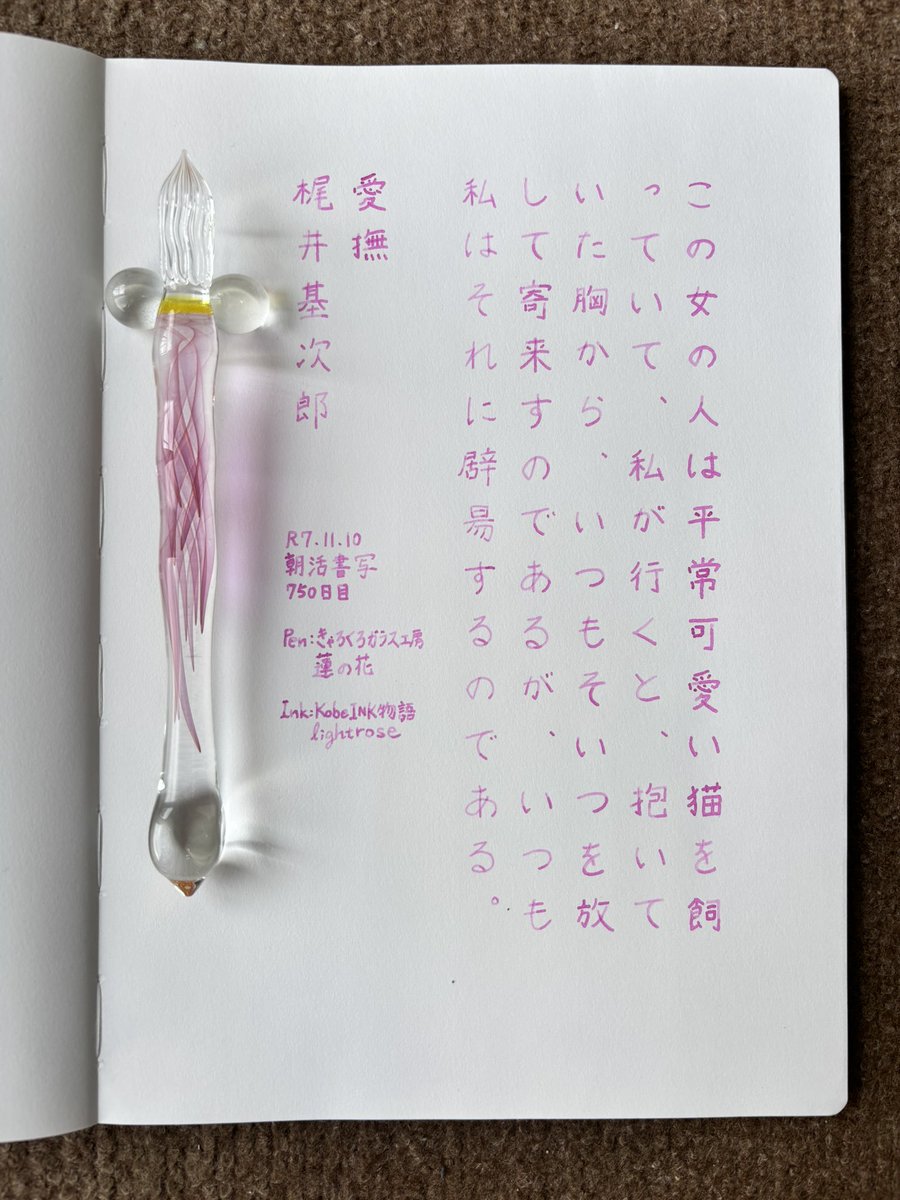 この女の人は平常可愛い猫を飼
っていて、私が行くと、抱いて
いた胸から、いつもそいつを放
して寄来すのであるが、いつも
私はそれに辟易するのである。
愛撫
梶井基次郎
R7.11.10
朝活書写
750日目
Pen:きゃろくろガラス工房
蓮の花
Ink:KobeINK物語
lightrose